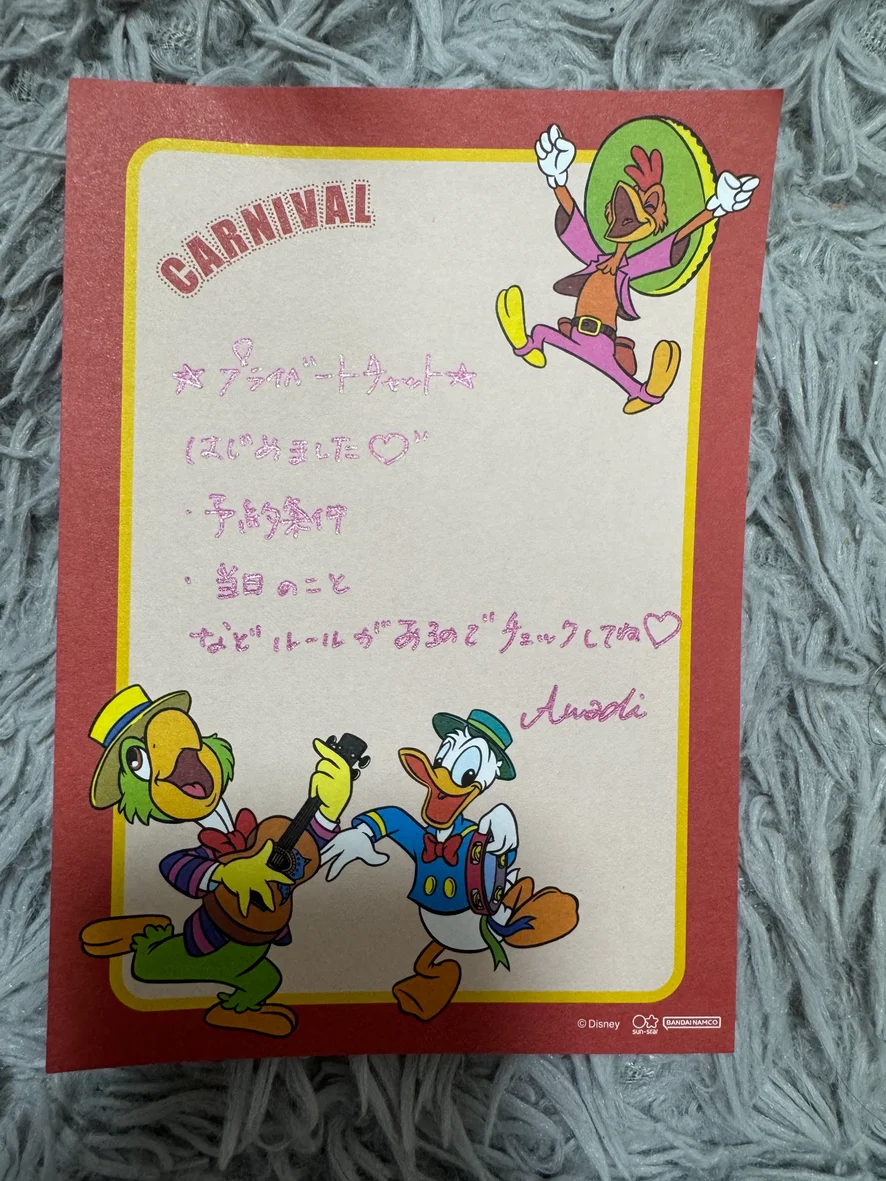 CARNIVAL
★プライベートチャット★
はじめました♡"
・予約条件
・当日のこと
などルールがあるのでチェックしてね♡
Awadi
©Disney
sun-star
BANDAI NAMCO